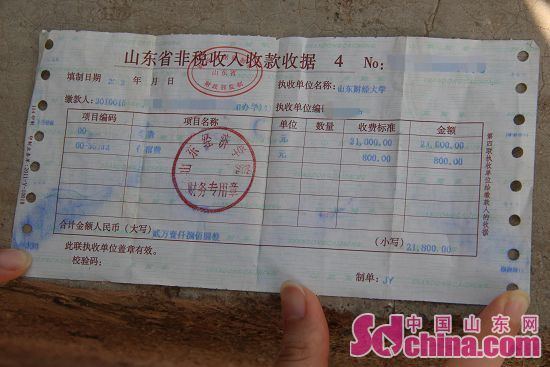 山东省非税收入收款收据 4 No:
填制日期: 年 月 日 执收单位名称: 山东财经大学
缴款人: 执收单位编
项目编码 项目名称 单位 数量 收费标准 金额
00 费 元 21,000.00 21,000.00
宿费 元 800.00 800.00
合计金额人民币 (大写) 贰万壹仟捌佰圆整 (小写) 21,800.00
此联执收单位盖章有效。
校验码: 制单: JY
第四联执收单位给缴款人的收据
山东省
山东经济学院
财务专用章
中国山东网
Sdchina.com